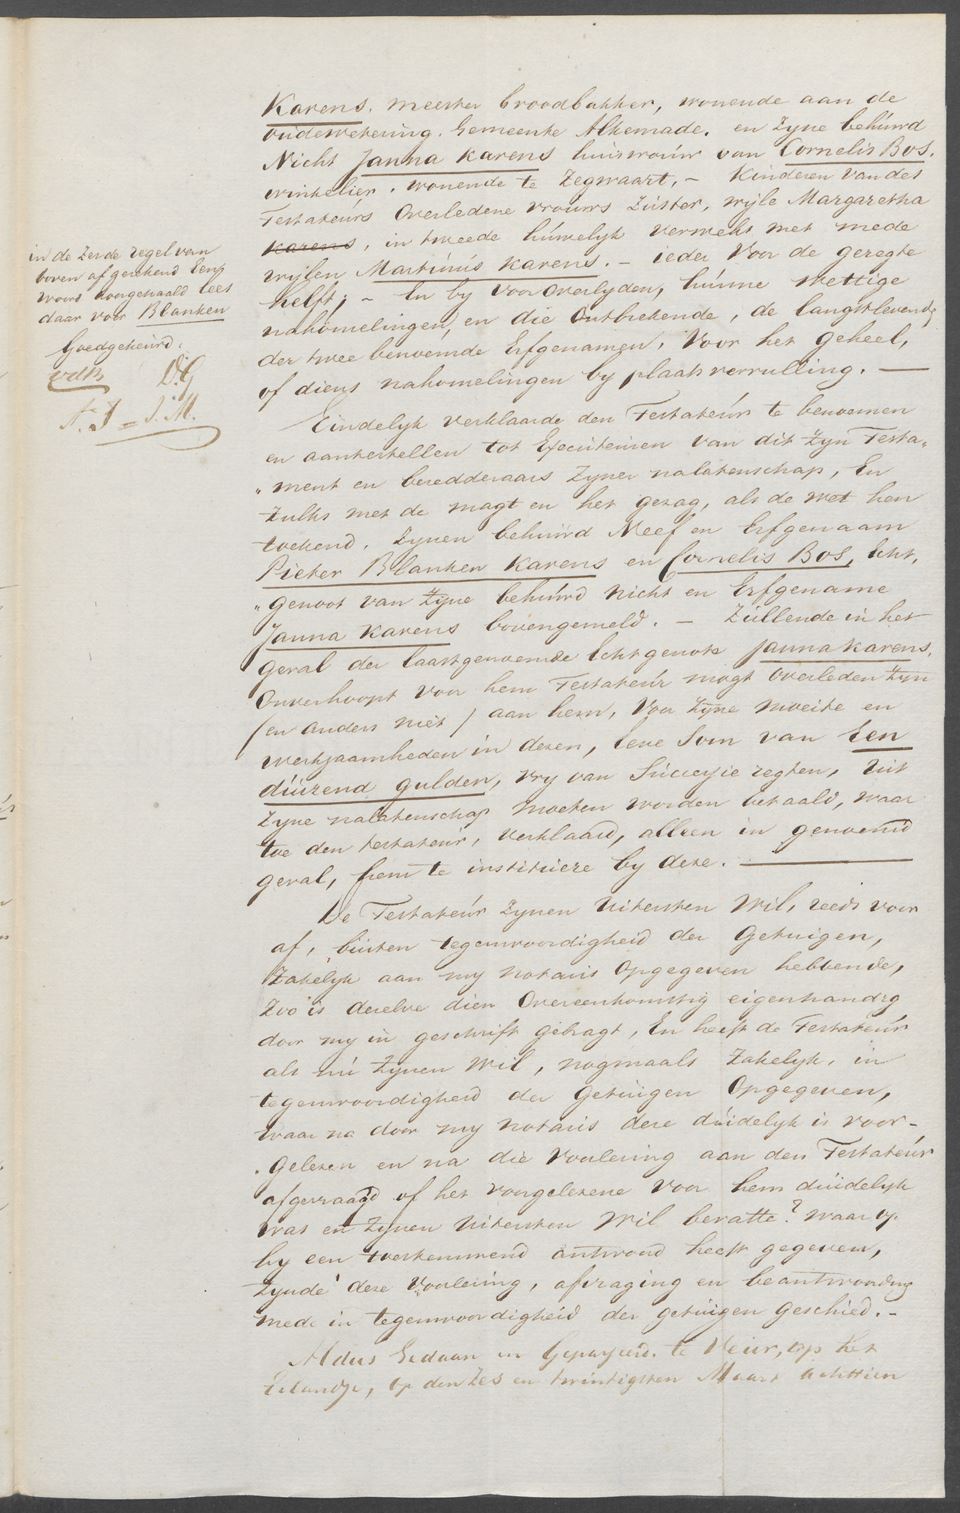 in de zesde regel van
boven afgerekend Een
woord doorgehaald lees
daar voor Blanken
Goedgekeurd.
vdB D.G
A. J - J. M.
Karens. meester broodbakker, wonende aan de
oudewetering. Gemeente Alkemade. en Zyne behúwd
Nicht Janna Karens huisvrouw van Cornelis Bos.
winkelier. wonende te Zegwaart. - Kinderen van des
Testateúrs Overledene vrouws Zúster, wyle Margaretha
Karens, in tweede húwelyk verwekt met mede
wylen Martinús Karens. - ieder Voor de geregte
helft; - En by Vooroverlyden, húnne wettige
nakomelingen, en die Ontbrekende, de langstlevende
der twee benoemde Erfgenamen, Voor het geheel,
of diens nakomelingen by plaatsvervulling. -
Eindelyk verklaarde den Testateúr te benoemen
en aantestellen tot Executeuren van dit zyn Testa„
„ment en beredderaars Zyner nalatenschap, En
Zulks met de magt en het gezag, als de wet hen
toekend. Zynen behúwd Neef en Erfgenaam
Pieter Blanken Karens en Cornelis Bos, Echt„
„genoot van Zyne behúwd nicht en Erfgename
Janna Karens bovengemeld. - Zúllende in het
geval der laastgenoemde Echtgenote Janna Karens,
Onverhoopt voor hem Testateúr mogt overleden zyn
(en anders niet) aan hem, Voor Zyne moeite en
werkzaamheden in dezen, Eene Som van Een
dúizend gulden, vry van Súccessie regten, uit
Zyne nalatenschap moeten worden betaald, waar
toe den testateúr, verklaard, alleen in genoemd
geval, hem te institúere by deze. -
De Testateúr Zynen Uitersten Wil, reeds voor
af, búiten tegenwoordigheid der Getuigen,
Zakelyk aan my notaris Opgegeven hebbende,
Zoo is dezelve dien Overeenkomstig eigenhandig
door my in geschrift gebragt, En heeft de Testateúr
als nú Zynen wil, nogmaals Zakelyk, in
tegenwoordigheid der getuigen Opgegeven,
Waar na door my notaris deze dúidelyk is voor-
.gelezen en na die Voorlezing aan den Testateúr
afgevraagd of het voorgelezene Voor hem dúidelyk
was en Zynen Uitersten Wil bevatte? waar op
hy een toestemmend antwoord heeft gegeven,
Zynde deze Voorlezing, afvraging en beantwoording
mede in tegenwoordigheid der getúigen geschied. -
Aldus Gedaan en Gepasseerd. te Veúr, op het
Eilandje, op den Zes en twintigsten Maart achttien